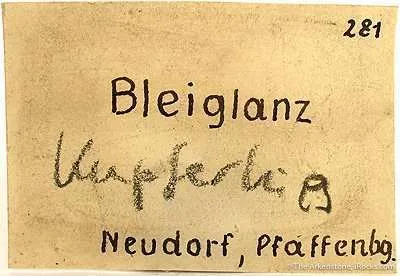 281
Bleiglanz
Kupferki
Neudorf, Pfaffenbg.
© The Arkenstone, iRocks.com